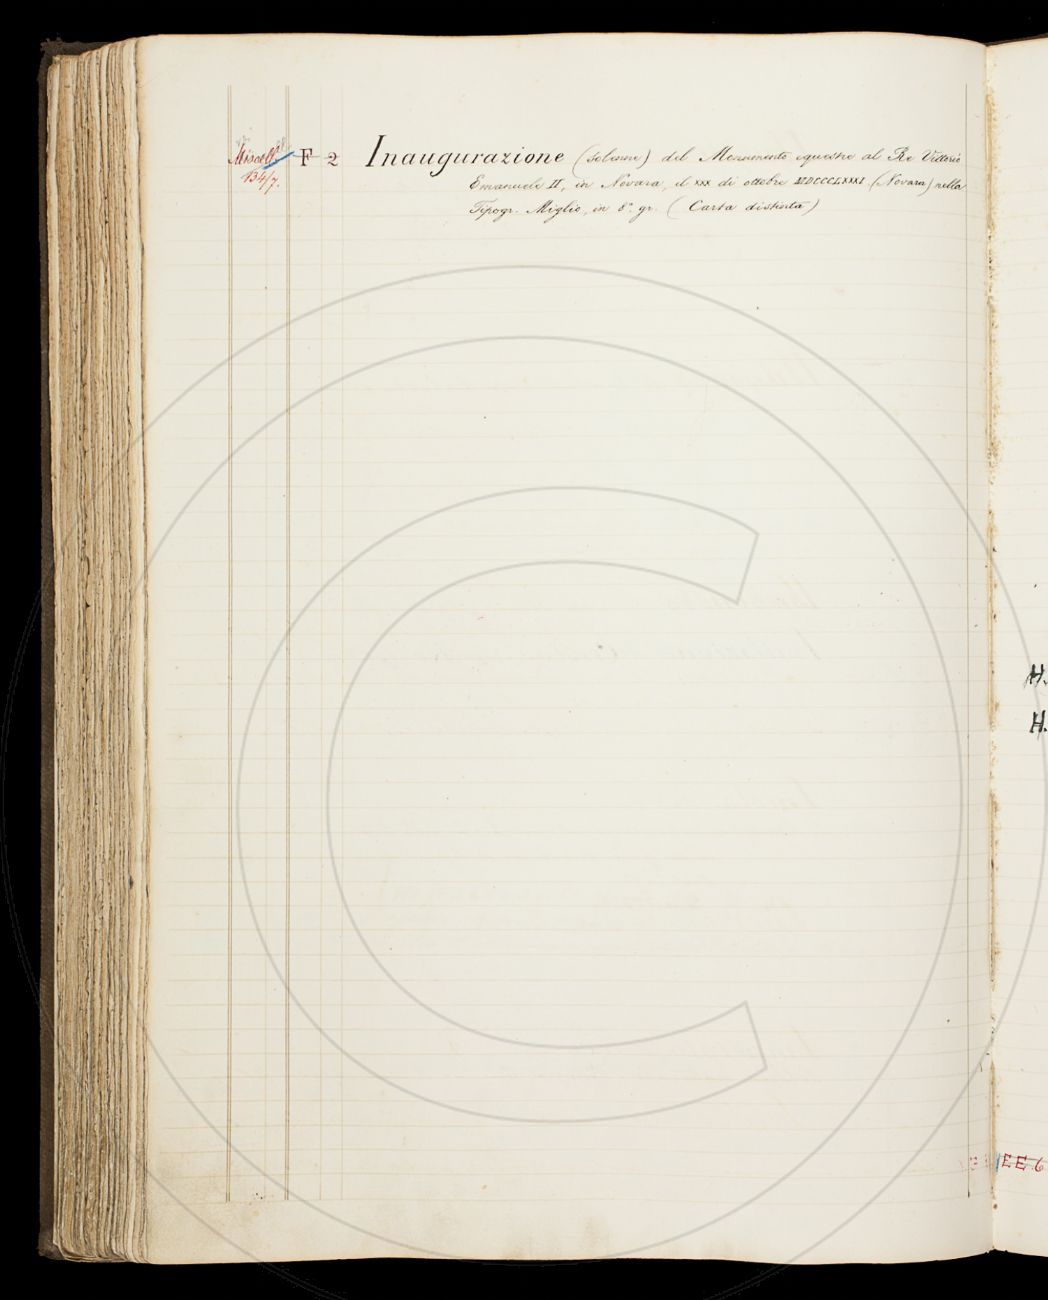 Miscell. F 2 Inaugurazione (solenne) del Monumento equestre al Re Vittorio
134/7.
Emanuele II, in Novara, il xxx di ottobre MDCCCLXXXI. (Novara) nella
Tipogr. Miglio, in 8°. gr. (Carta distinta)
H.
H.
EE 6